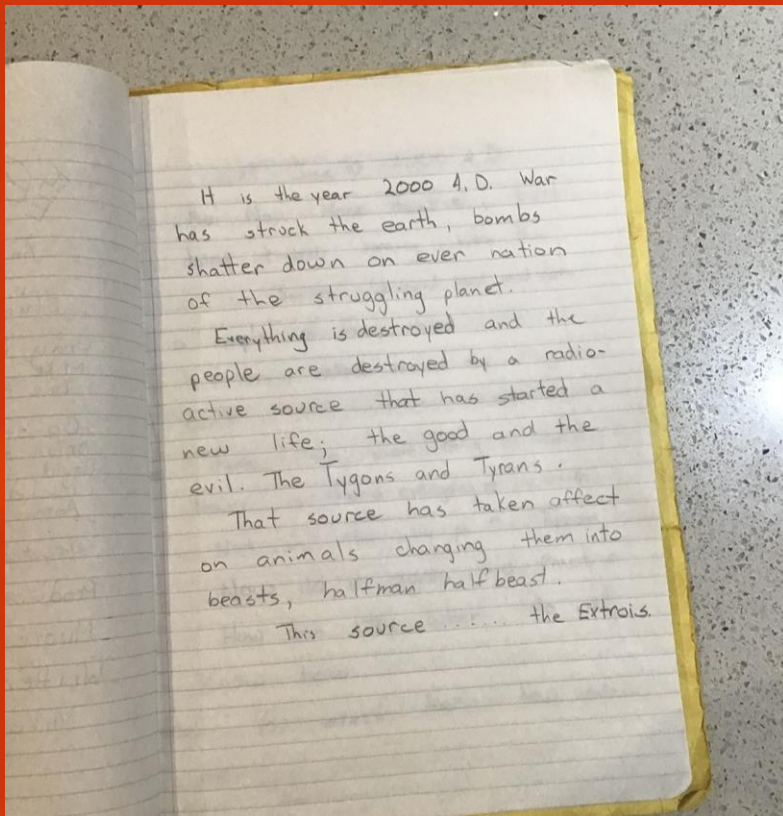 It is the year 2000 A.D. War
has struck the earth, bombs
shatter down on ever nation
of the struggling planet.
Everything is destroyed and the
people are destroyed by a radio-
active source that has started a
new life; the good and the
evil. The Tygons and Tyrans.
That source has taken affect
on animals changing them into
beasts, halfman half beast.
This source ...... the Extrois.